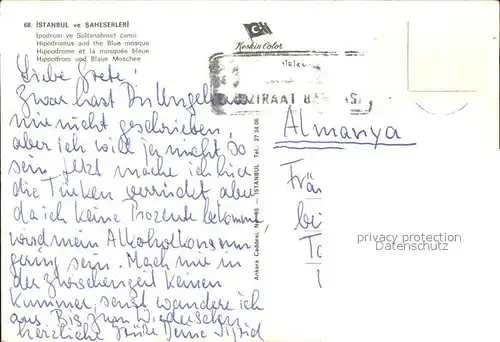 68. İSTANBUL ve ŞAHESERLERİ
İpodrom ve Sultanahmet camii
Hipodromus and the Blue mosque
Hippodrome et la mosquée bleue
Hippodrom und Blaue Moschee
Keskin Color
ZİRAAT
Liebe Grete!
Zwar hast Du
mir nicht geschrieben,
aber ich will ja nicht so
sein. Jetzt mache ich hier
die Türken verrückt aber
da ich keine Prozente bekomme,
wird mein Alkoholkonsum
gering sein. Mach mir in
der Zwischenzeit keinen
Kummer, sonst wandere ich
aus. Bis zum Wiedersehen
herzliche Grüße Deine Sigrid
Ankara Caddesi, No. 98 — İSTANBUL Tel.: 27 34 06
Almanya
privacy protection
Datenschutz